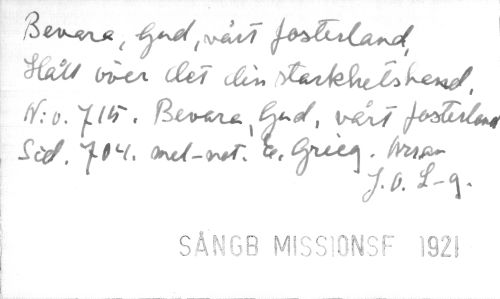 Bevara, Gud, vårt fosterland,
Håll över det din starkhetshand,
N:o. 715. Bevara, Gud, vårt fosterland
Sid. 704. mel-not. E. Grieg.
J. O. L-g.
SÅNGB MISSIONSF 1921